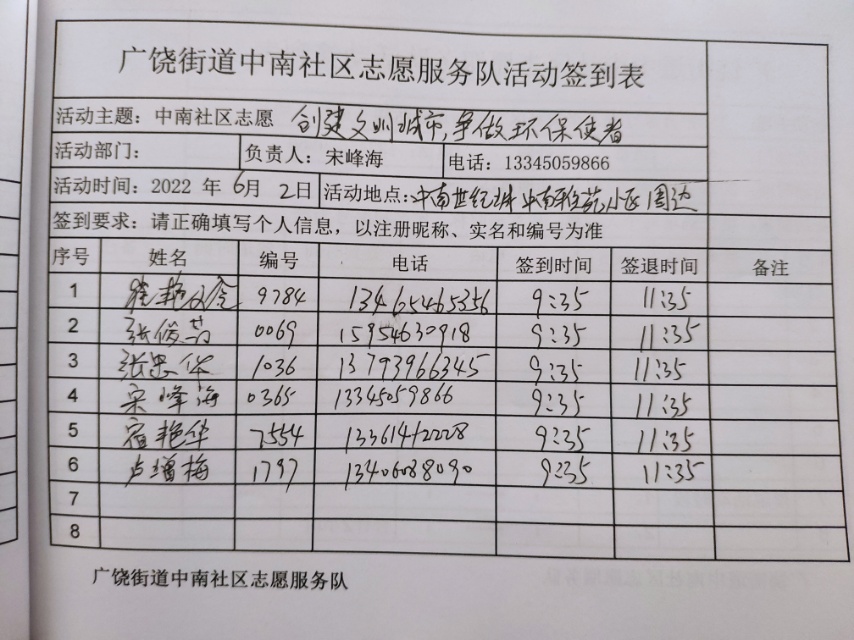 广饶街道中南社区志愿服务队活动签到表
活动主题：中南社区志愿 创建文明城市，争做环保使者
活动部门： 负责人：宋峰海 电话：13345059866
活动时间：2022 年 6月 2日 活动地点：中南世纪城 中南雅苑小区周边
签到要求：请正确填写个人信息，以注册昵称、实名和编号为准
序号 姓名 编号 电话 签到时间 签退时间 备注
1 9784 13465465356 9:35 11:35
2 张俊芳 0069 15954630918 9:35 11:35
3 张忠华 1036 13793966345 9:35 11:35
4 宋峰海 0365 13345059866 9:35 11:35
5 宿艳华 7554 13361412228 9:35 11:35
6 卢增梅 1797 13406088090 9:35 11:35
7
8
广饶街道中南社区志愿服务队